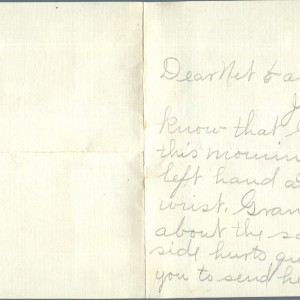 Dear Net & a
J
know that
this mornin
left hand a
wrist. Gran
about the sa
side hurts qu
you to send he